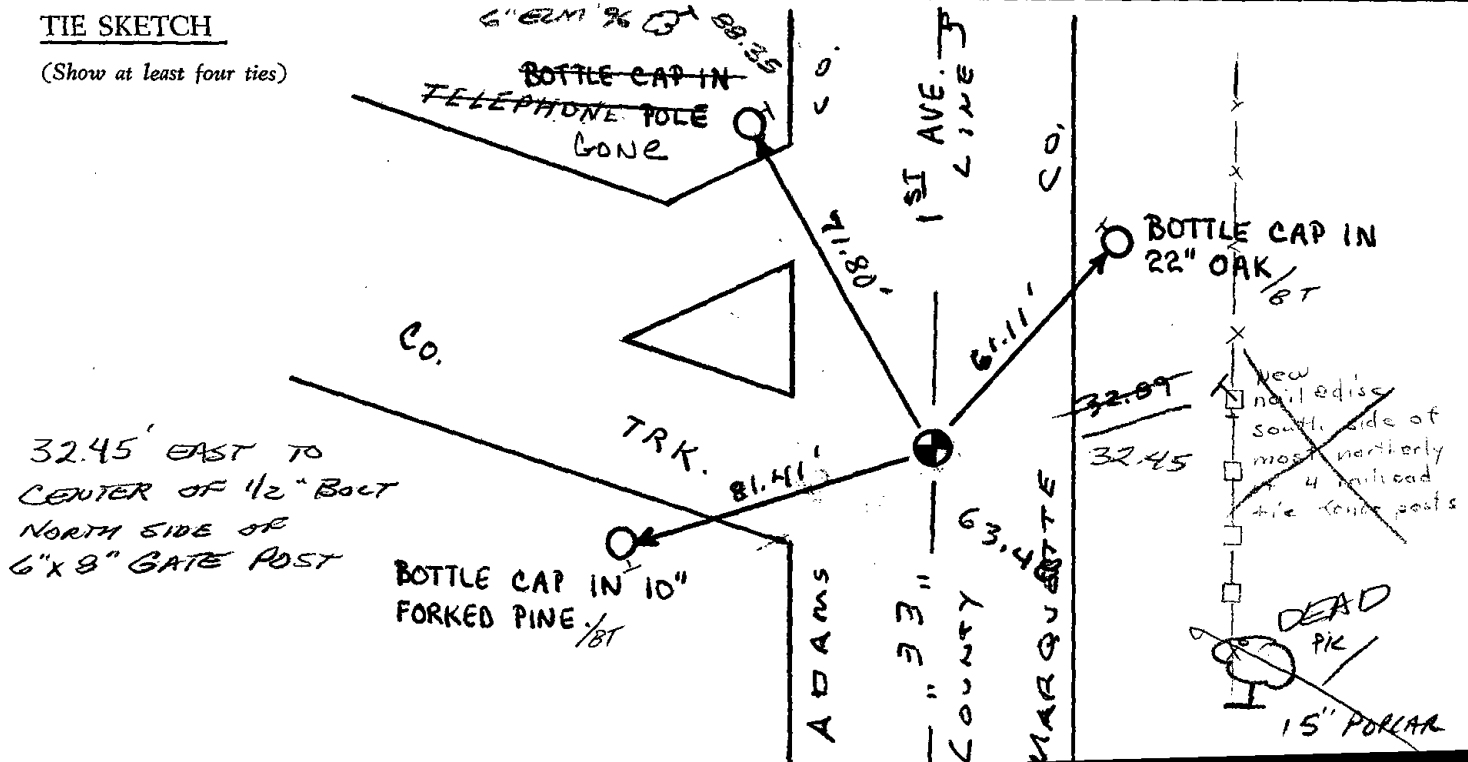 TIE SKETCH
(Show at least four ties)
6" ELM '96
88.35
BOTTLE CAP IN
TELEPHONE POLE
GONE
CO.
1ST AVE.
LINE
CO.
BOTTLE CAP IN
22" OAK
/BT
71.80'
61.11'
CO.
TRK.
81.41'
32.89
32.45
New
nail & disc
south side of
most northerly
4 railroad
tie fence posts
32.45' EAST TO
CENTER OF 1/2" BOLT
NORTH SIDE OF
6"x8" GATE POST
BOTTLE CAP IN 10"
FORKED PINE /BT
ADAMS
"33"
COUNTY
MARQUETTE
DEAD
PK
15" POPLAR